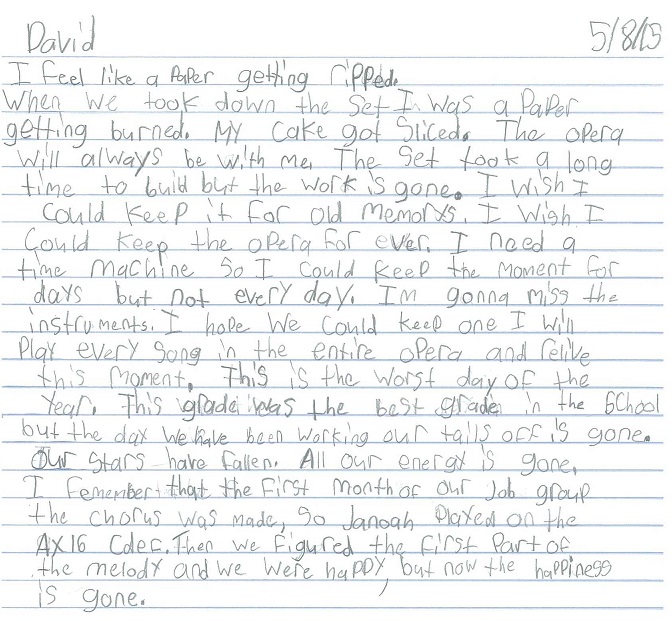 David 5/8/15
I feel like a paper getting ripped.
When we took down the set I was a paper
getting burned. My cake got sliced. The opera
will always be with me. The set took a long
time to build but the work is gone. I wish I
could keep it for old memorys. I wish I
could keep the opera for ever. I need a
time machine so I could keep the moment for
days but not every day. Im gonna miss the
instruments. I hope we could keep one I will
play every song in the entire opera and relive
this moment. This is the worst day of the
year. This grade was the best grade in the school
but the day we have been working our tails off is gone.
Our stars have fallen. All our energy is gone.
I remember that the first month of our job group
the chorus was made, so Janoah played on the
AX16 Cdec. Then we figured the first part of
the melody and we were happy, but now the happiness
is gone.